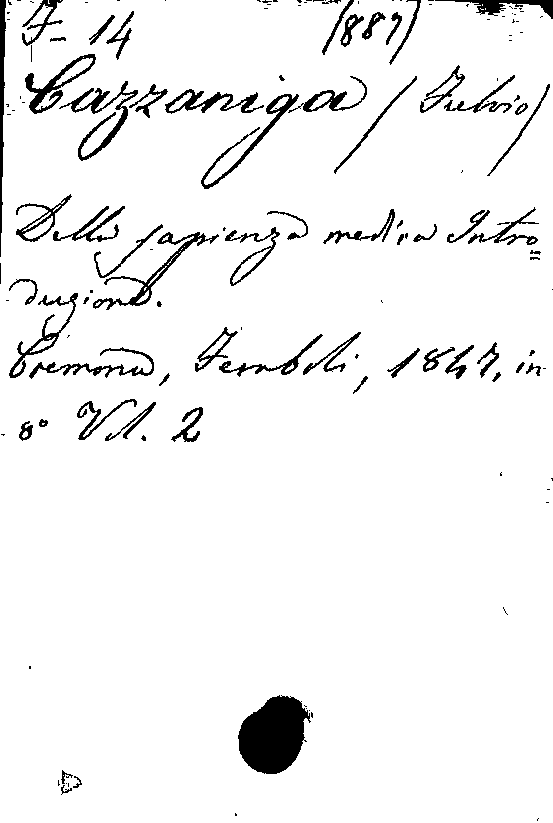 F- 14 (887)
Cazzaniga (Fulvio)
Della sapienza medica Intro=
duzione.
Cremona, Feraboli, 1847, in
8° Vol. 2